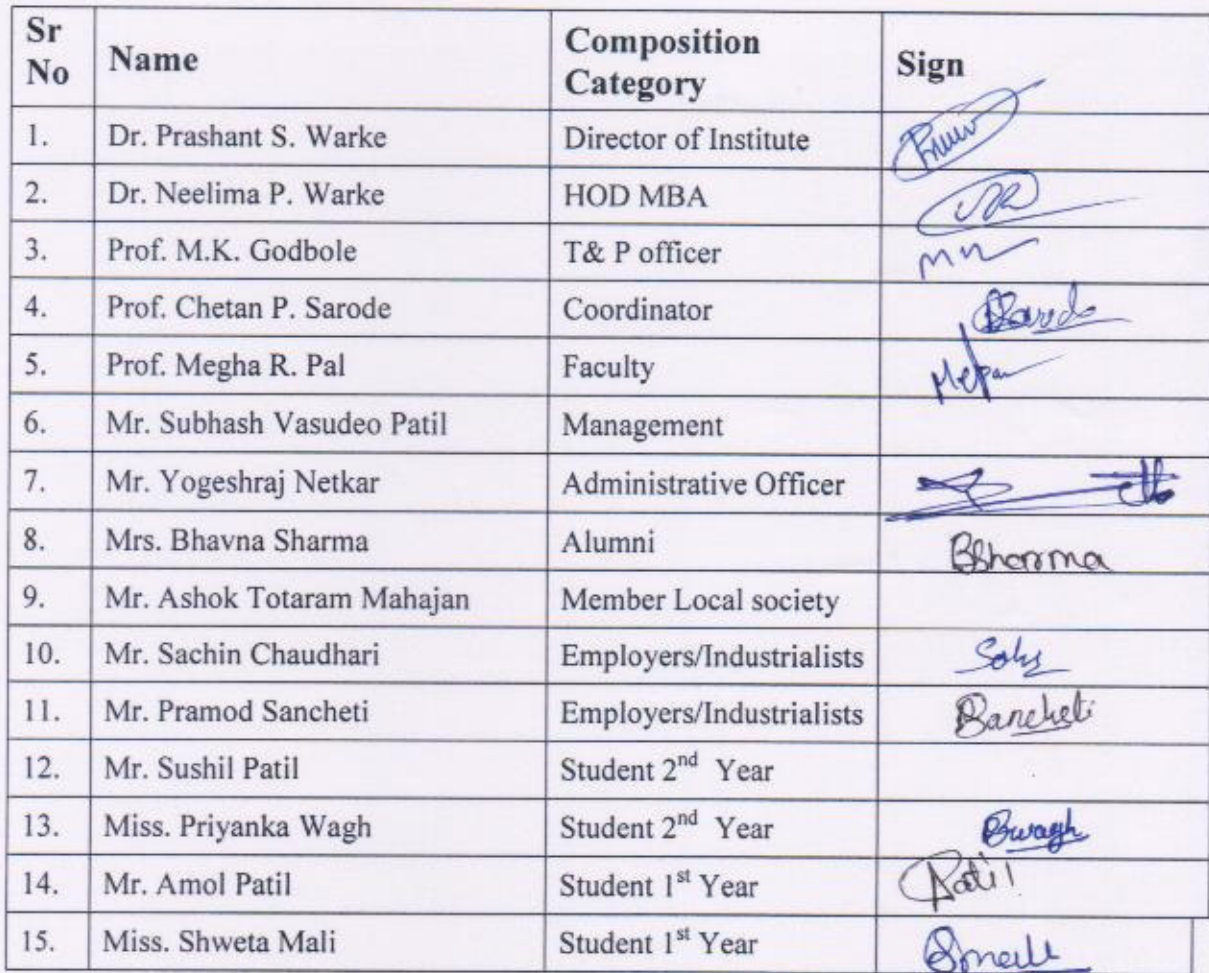 Sr No Name Composition Category Sign
1. Dr. Prashant S. Warke Director of Institute
2. Dr. Neelima P. Warke HOD MBA
3. Prof. M.K. Godbole T& P officer
4. Prof. Chetan P. Sarode Coordinator
5. Prof. Megha R. Pal Faculty
6. Mr. Subhash Vasudeo Patil Management
7. Mr. Yogeshraj Netkar Administrative Officer
8. Mrs. Bhavna Sharma Alumni BSharma
9. Mr. Ashok Totaram Mahajan Member Local society
10. Mr. Sachin Chaudhari Employers/Industrialists
11. Mr. Pramod Sancheti Employers/Industrialists Sancheti
12. Mr. Sushil Patil Student 2nd Year
13. Miss. Priyanka Wagh Student 2nd Year Pwagh
14. Mr. Amol Patil Student 1st Year Patil
15. Miss. Shweta Mali Student 1st Year